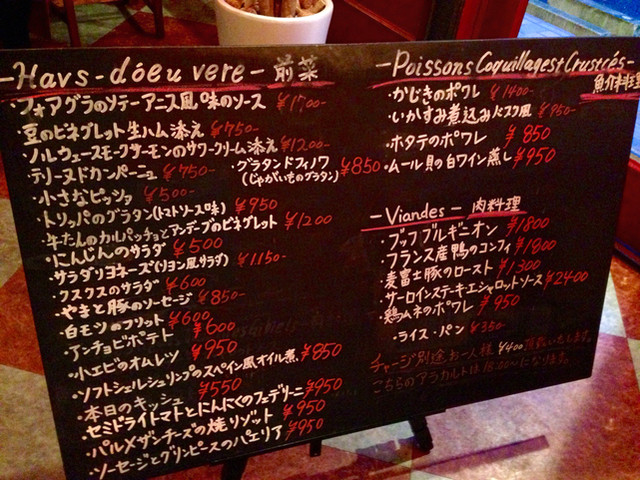 -Havs-dóeuvere- 前菜
フォアグラのソテーアニス風味のソース ¥1700-
豆のビネグレット生ハム添え ¥750-
・ノルウェースモークサーモンのサワークリーム添え ¥1200-
テリーヌドカンパーニュ ¥750-
・グラタンドフィノワ ¥850
(じゃがいものグラタン)
・小さなピッツァ ¥500-
・トリッパのグラタン(トマトソース味) ¥950
・牛たんのカルパッチョとアンデーブのビネグレット ¥1200
・にんじんのサラダ ¥500
・サラダリヨネーズ(リヨン風サラダ) ¥1150-
・クスクスのサラダ ¥600
・やまと豚のソーセージ ¥850-
・白モツのフリット ¥600
・アンチョビポテト ¥600
・小エビのオムレツ ¥950
・ソフトシェルシュリンプのスペイン風オイル煮 ¥850
・本日のキッシュ ¥550
・セミドライトマトとにんにくのフェデリーニ ¥950
・パルメザンチーズの焼リゾット ¥950
・ソーセージとグリンピースのパエリア ¥950
-Poissons Coquillagest Crustrés-
魚介料理
・かじきのポワレ ¥1400-
・いかすみ煮込みバスク風 ¥950
・ホタテのポワレ ¥850
・ムール貝の白ワイン蒸し ¥950
-Viandes- 肉料理
・ブッフブルギニーオン ¥1800
・フランス産鴨のコンフィ ¥1900
・麦富士豚のロースト ¥1300
・サーロインステーキエシャロットソース ¥2400
・鶏ムネのポワレ ¥950
・ライス・パン ¥350
チャージ別途お一人様 ¥400頂戴いたします。
こちらのアラカルトは18:00〜になります。